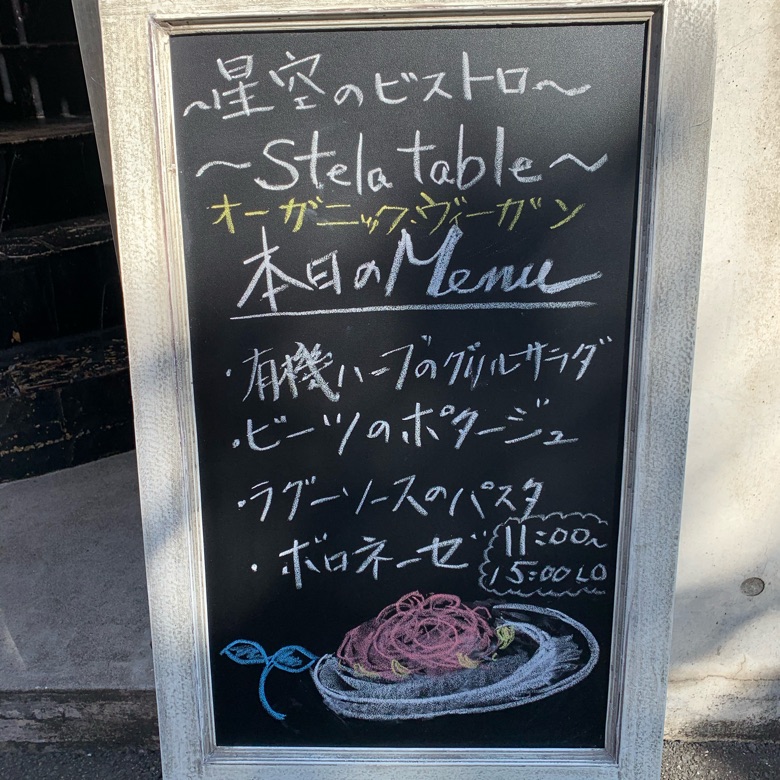 ~星空のビストロ~
~Stela table~
オーガニック、ヴィーガン
本日のMenu
・有機ハーブのグリルサラダ
・ビーツのポタージュ
・ラグーソースのパスタ
・ボロネーゼ
11:00~
15:00 LO